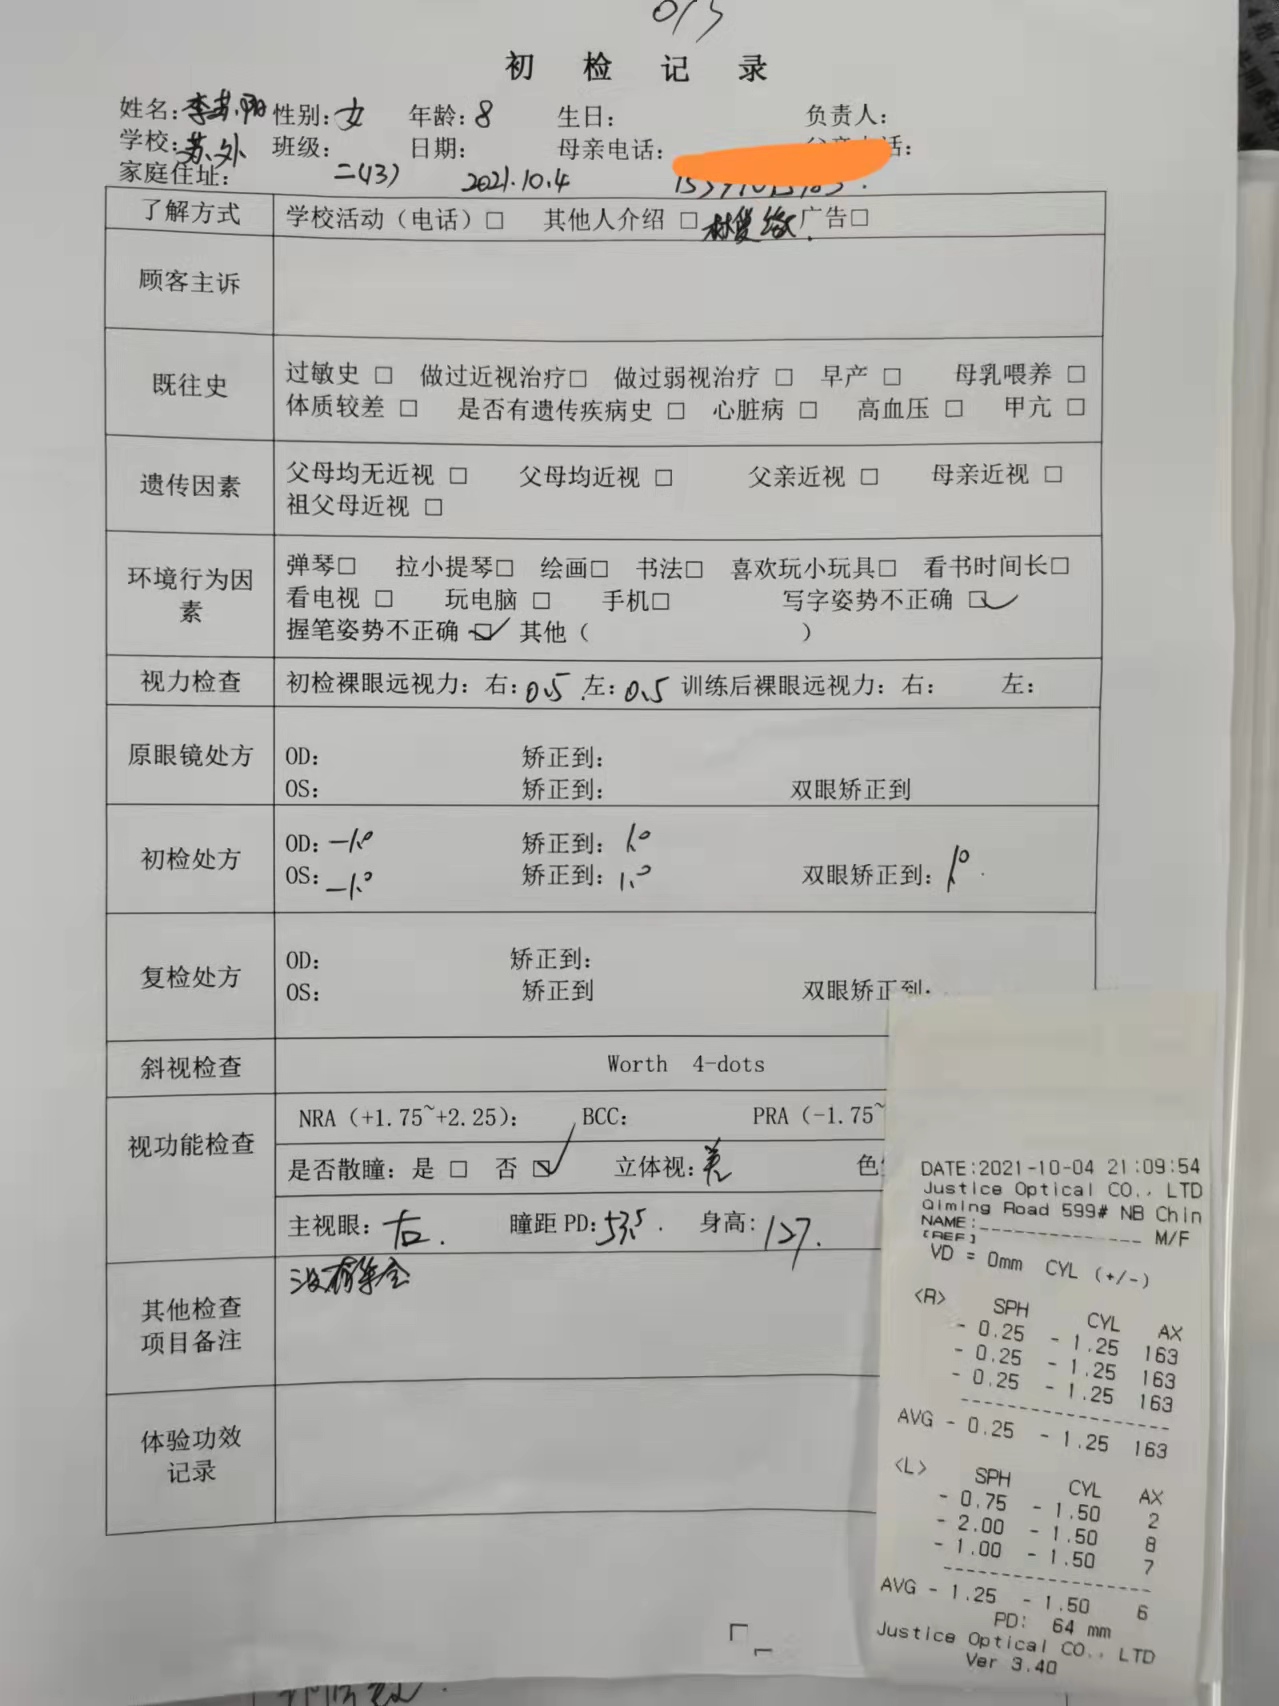 初 检 记 录
姓名: 性别:女 年龄:8 生日: 负责人:
学校:苏外 班级: 日期: 母亲电话: 话:
家庭住址: 二(13) 2021.10.4
了解方式 学校活动（电话）□ 其他人介绍 □ 广告□
顾客主诉
既往史 过敏史 □ 做过近视治疗□ 做过弱视治疗 □ 早产 □ 母乳喂养 □
体质较差 □ 是否有遗传疾病史 □ 心脏病 □ 高血压 □ 甲亢 □
遗传因素 父母均无近视 □ 父母均近视 □ 父亲近视 □ 母亲近视 □
祖父母近视 □
环境行为因素 弹琴□ 拉小提琴□ 绘画□ 书法□ 喜欢玩小玩具□ 看书时间长□
看电视 □ 玩电脑 □ 手机□ 写字姿势不正确 ☑
握笔姿势不正确 ☑ 其他（ ）
视力检查 初检裸眼远视力：右:0.5 左:0.5 训练后裸眼远视力：右: 左:
原眼镜处方 OD: 矫正到:
OS: 矫正到: 双眼矫正到
初检处方 OD: -1.0 矫正到: 1.0
OS: -1.0 矫正到: 1.0 双眼矫正到: 1.0
复检处方 OD: 矫正到:
OS: 矫正到 双眼矫正到:
斜视检查 Worth 4-dots
视功能检查 NRA（+1.75~+2.25）: BCC: PRA（-1.75~
是否散瞳：是 □ 否 ☑ 立体视: 色
主视眼: 右. 瞳距 PD: 53.5. 身高: 127.
其他检查项目备注 没有集合
体验功效记录
DATE:2021-10-04 21:09:54
Justice Optical CO., LTD
Qiming Road 599# NB Chin
NAME:______________ M/F
[REF]
VD = 0mm CYL (+/-)
<R> SPH CYL AX
- 0.25 - 1.25 163
- 0.25 - 1.25 163
- 0.25 - 1.25 163
AVG - 0.25 - 1.25 163
<L> SPH CYL AX
- 0.75 - 1.50 2
- 2.00 - 1.50 8
- 1.00 - 1.50 7
AVG - 1.25 - 1.50 6
PD: 64 mm
Justice Optical CO., LTD
Ver 3.40